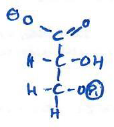 ⊖O O
C
H-C-OH
H-C-OⓅ
H